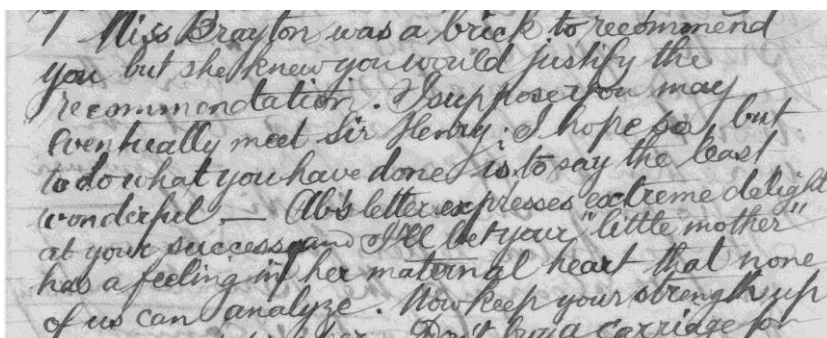 Miss Brayton was a brick to recommend
you but she knew you would justify the
recommendation. I suppose you may
eventually meet Sir Henry. I hope so, but
to do what you have done is to say the least
wonderful — Ab's letter expresses extreme delight
at your success, and I'll bet your "little mother"
has a feeling in her maternal heart that none
of us can analyze. Now keep your strength up
Don't buy a carriage for